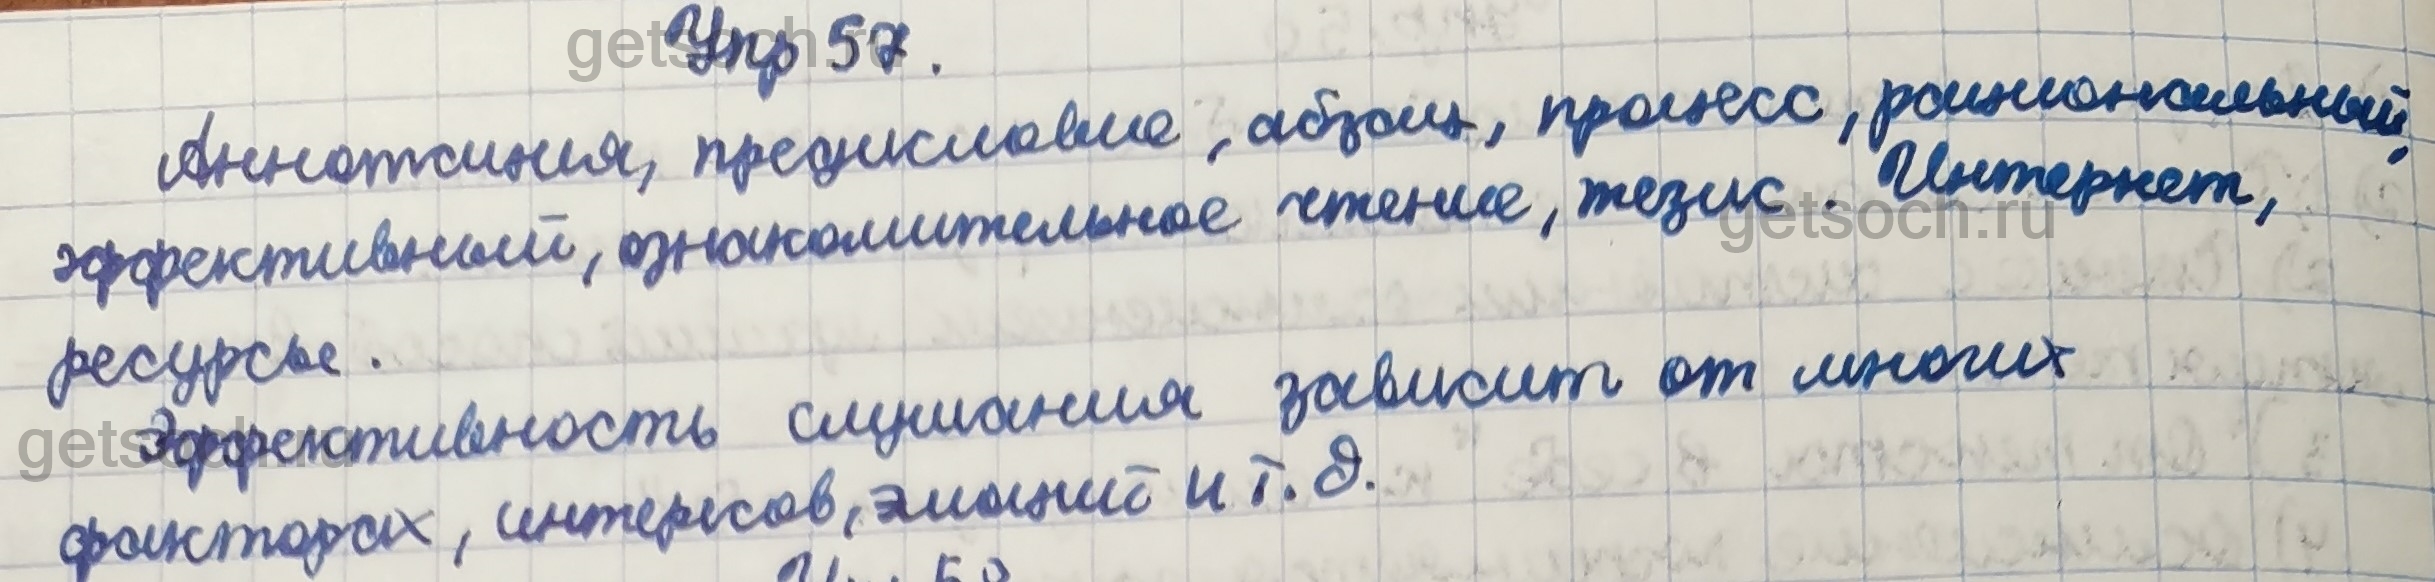 Упр 57.
Аннотация, предисловие, абзац, процесс, рациональный,
эффективный, ознакомительное чтение, тезис. Интернет,
ресурсы.
Эффективность слушания зависит от многих
факторах, интересов, эмоций и т. д.
Упр 58
getsoch.ru
getsoch.ru
getsoch.ru